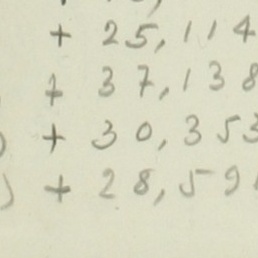 + 25,114
+ 37,138
) + 30,353
) + 28,59